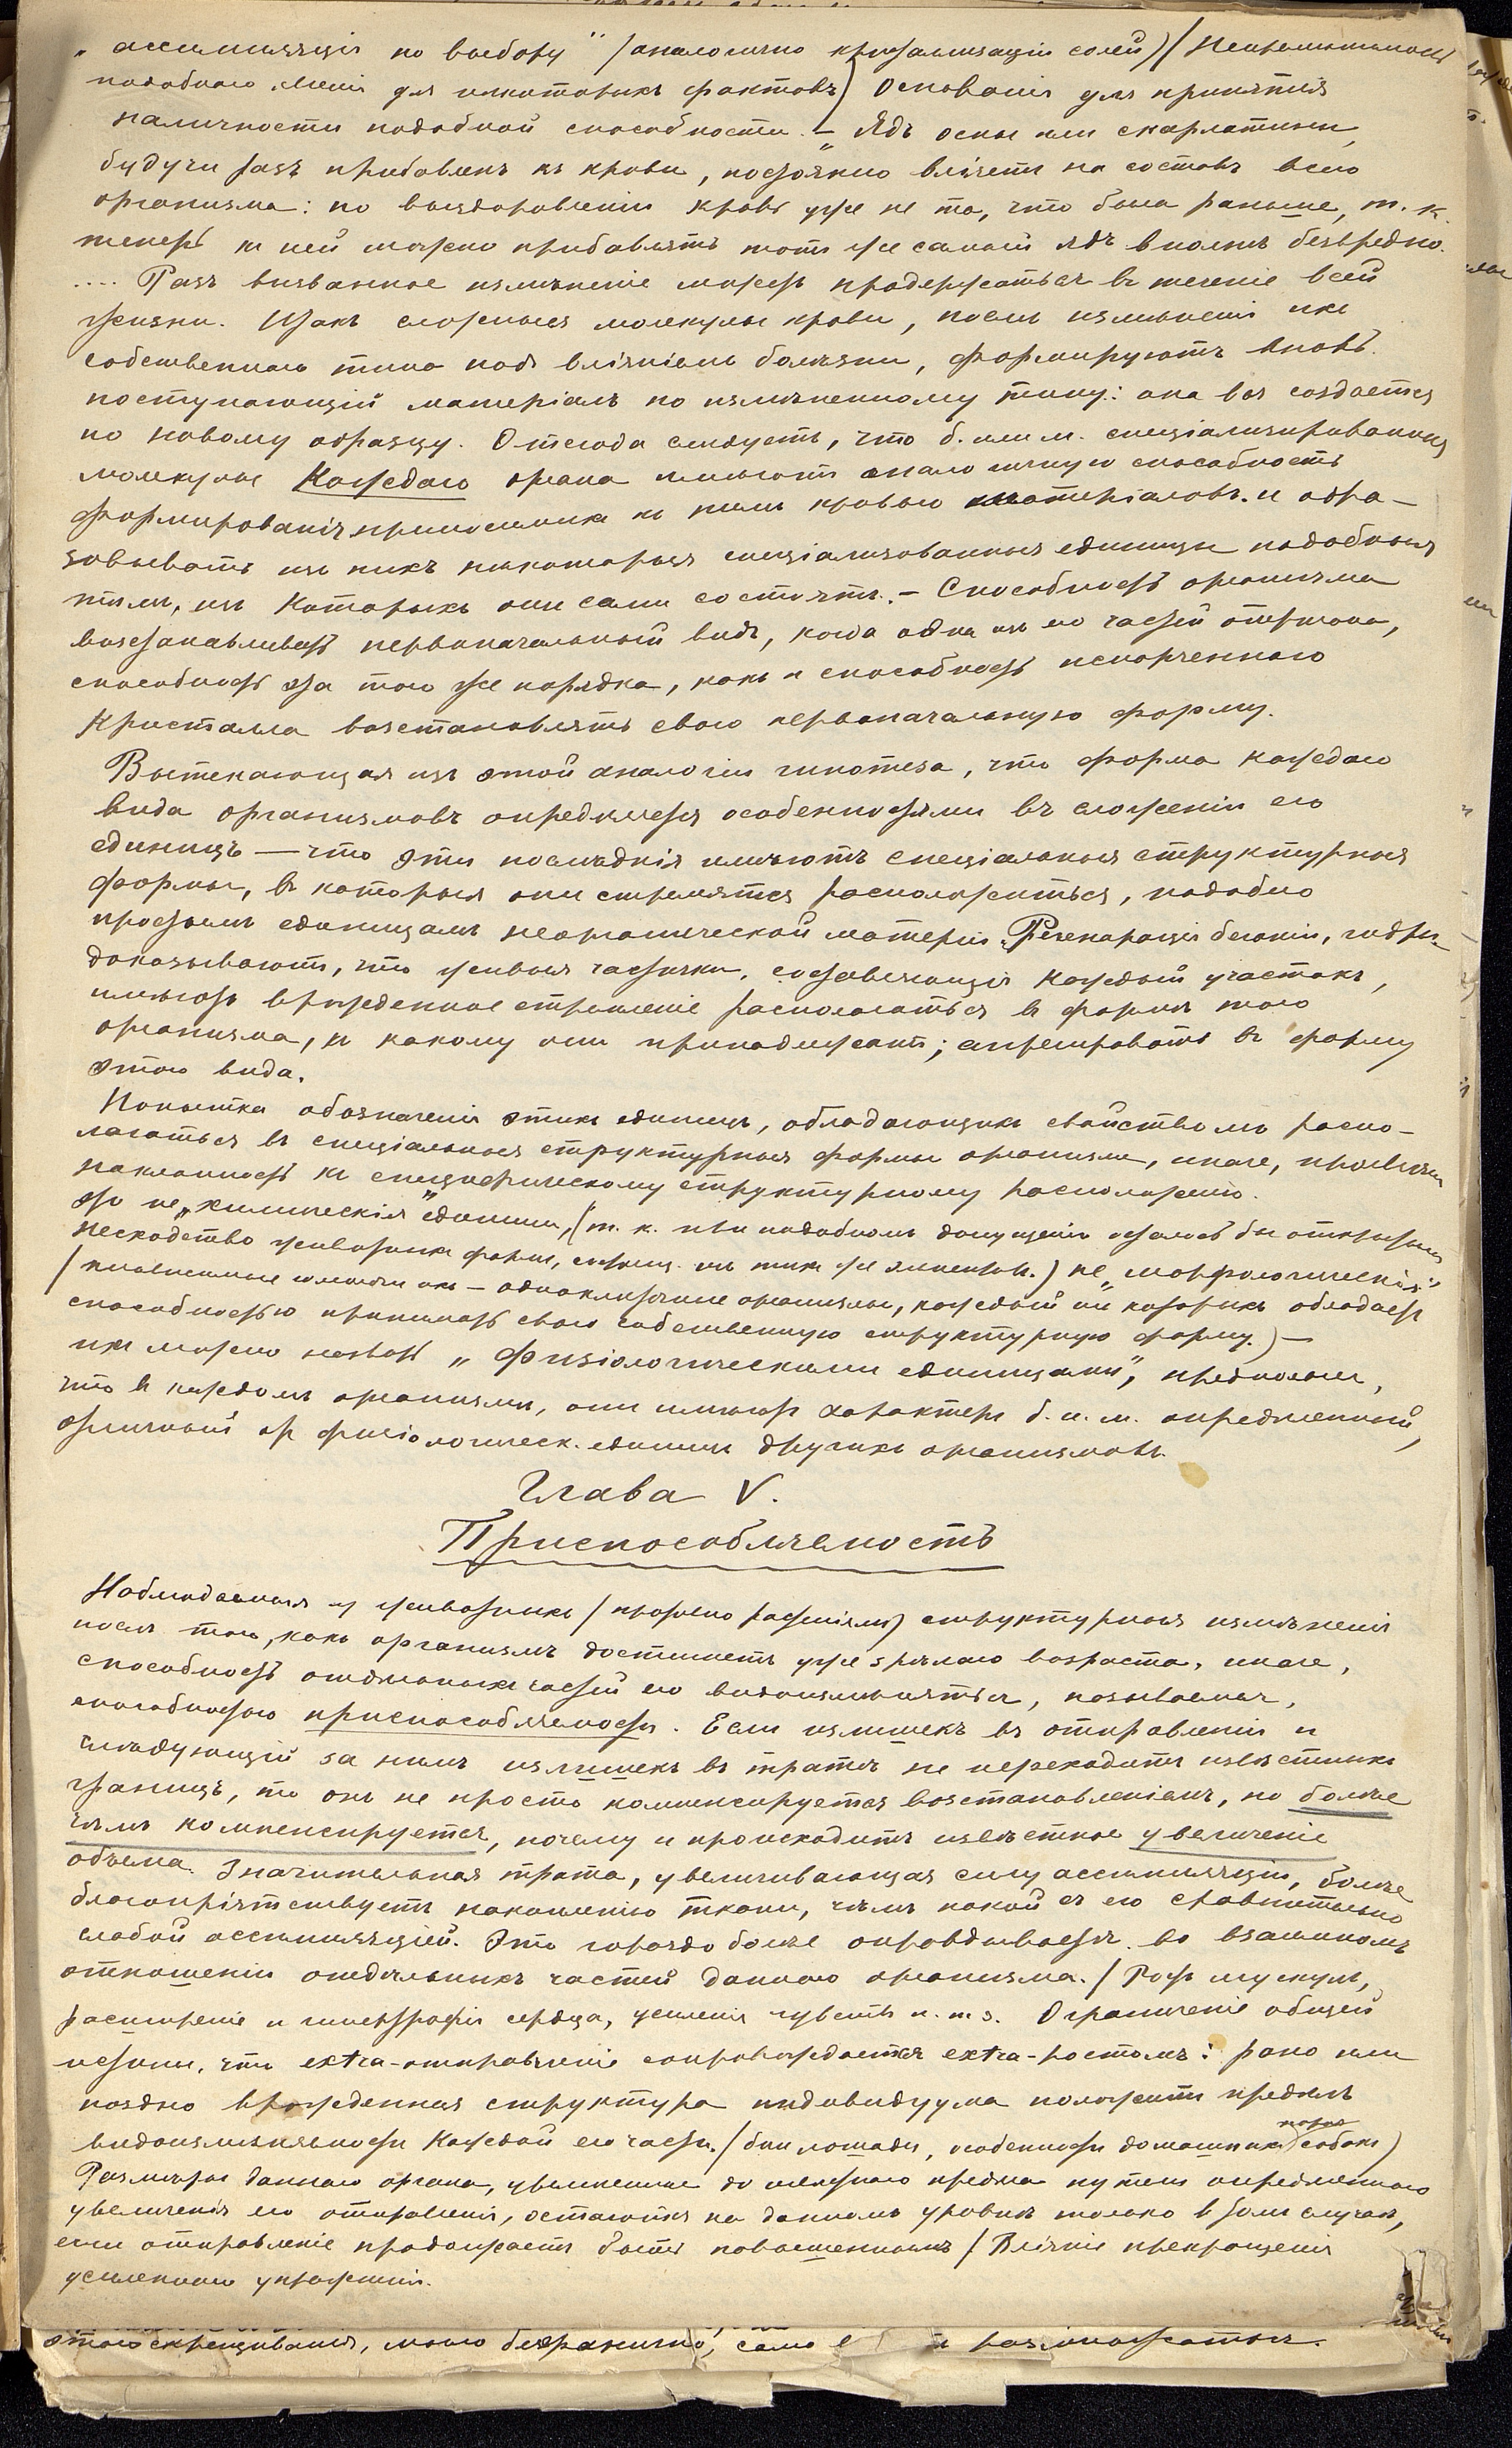 „ассимиляція по выбору“ (аналогично кристаллизаціи солей) (Непримѣнимость
подобнаго мнѣнія для нѣкоторыхъ фактовъ) Основанія для принятія
наличности подобной способности. – „Ядъ оспы или скарлатины,
будучи разъ прибавленъ къ крови, постоянно вліяетъ на составъ всего
организма: по выздоровленіи кровь уже не та, что была раньше, т. к.
теперь къ ней можно прибавлять тотъ же самый ядъ вполнѣ безвредно.
.... Разъ вызванное измѣненіе можетъ продержаться въ теченіе всей
жизни. Итакъ сложныя молекулы крови, послѣ измѣненія ихъ
собственнаго типа подъ вліяніемъ болѣзни, формируютъ вновь
поступающій матеріалъ по измѣненному типу: она вся создается
по новому образцу. Отсюда слѣдуетъ, что б. или м. спеціализированныя
молекулы Каждаго органа имѣютъ аналогичную способность
формированія приносимыхъ къ нимъ кровью матеріаловъ. и обра-
зовывать изъ нихъ нѣкоторыя спеціализованныя единицы подобныя
тѣмъ, изъ Которыхъ они сами состоятъ. – Способность организма
возстанавливать первоначальный видъ, когда одна изъ его частей отрѣзана,
способность эта того же порядка, какъ и способность испорченнаго
Кристалла возстановлять свою первоначальную форму.
Вытекающая изъ этой аналогіи гипотеза, что форма каждаго
вида организмовъ опредѣляется особенностями въ сложеніи его
единицъ — что эти послѣднія имѣютъ спеціальныя структурныя
формы, въ которыя они стремятся расположиться, подобно
простымъ единицамъ неорганической матеріи. Регенерація бегоніи, гидры
доказываютъ, что живыя частички, составляющія Каждый участокъ,
имѣютъ врожденное стремленіе располагаться въ форму того
организма, къ какому они принадлежатъ; агрегировать въ форму
этого вида.
Попытка обозначенія этихъ единицъ, обладающихъ свойствомъ распо-
лагаться въ спеціальныя структурныя формы организма, иначе, проявлять
наклонность къ специфическому структурному расположенію.
Это не „химическія“ единицы, (т. к. при подобномъ допущеніи осталось бы открытымъ
несходство животныхъ формъ, состоящ. изъ тѣхъ же элементовъ.) не „морфологическія“
способностью принимать свою собственную структурную форму.) –
ихъ можно назвать „физіологическими единицами“, предполагая,
что въ каждомъ организмѣ, они имѣютъ характеръ б. и. м. опредѣленный,
отличный отъ физіологическ. единицъ другихъ организмовъ.
Глава V.
Приспособляемость
Наблюдаемыя у животныхъ (противно растеніямъ) структурныя измѣненія
послѣ того, какъ организмъ достигнетъ уже зрѣлаго возраста, иначе,
способность отдѣльныхъ частей его видоизмѣняться, называемая,
способностью приспособляемости. Если излишекъ въ отправленіи и
слѣдующій за нимъ излишекъ въ тратѣ не переходитъ извѣстныхъ
границъ, то онъ не просто компенсируется возстановленіемъ, но болѣе
чѣмъ компенсируется, почему и происходитъ извѣстное увеличеніе
объема. Значительная трата, увеличивающая силу ассимиляціи, болѣе
благопріятствуетъ накопленію ткани, чѣмъ покой съ его сравнительно
слабой ассимиляціей. Это гораздо болѣе оправдывается во взаимномъ
отношеніи отдѣльныхъ частей даннаго организма. (Ростъ мускуловъ,
расширеніе и гипертрофія сердца, усиленія чувствъ и. т. з. Ограниченіе общей
истины, что extra-отправленіе сопровождается extra-ростомъ: рано или
поздно врожденная структура индивидуума положитъ предѣлъ
видоизмѣняемости Каждой его части. (бѣгъ лошади, особенности домашнихъ пород собакъ)
Размѣры даннаго органа, увеличенные до извѣстнаго предѣла путемъ опредѣленнаго
увеличенія его отправленія, остаются на данномъ уровнѣ только въ томъ случаѣ,
если отправленіе продолжаетъ быть повышеннымъ (Вліяніе прекращенія
усиленнаго упражненія.
этого скрещиванія, много